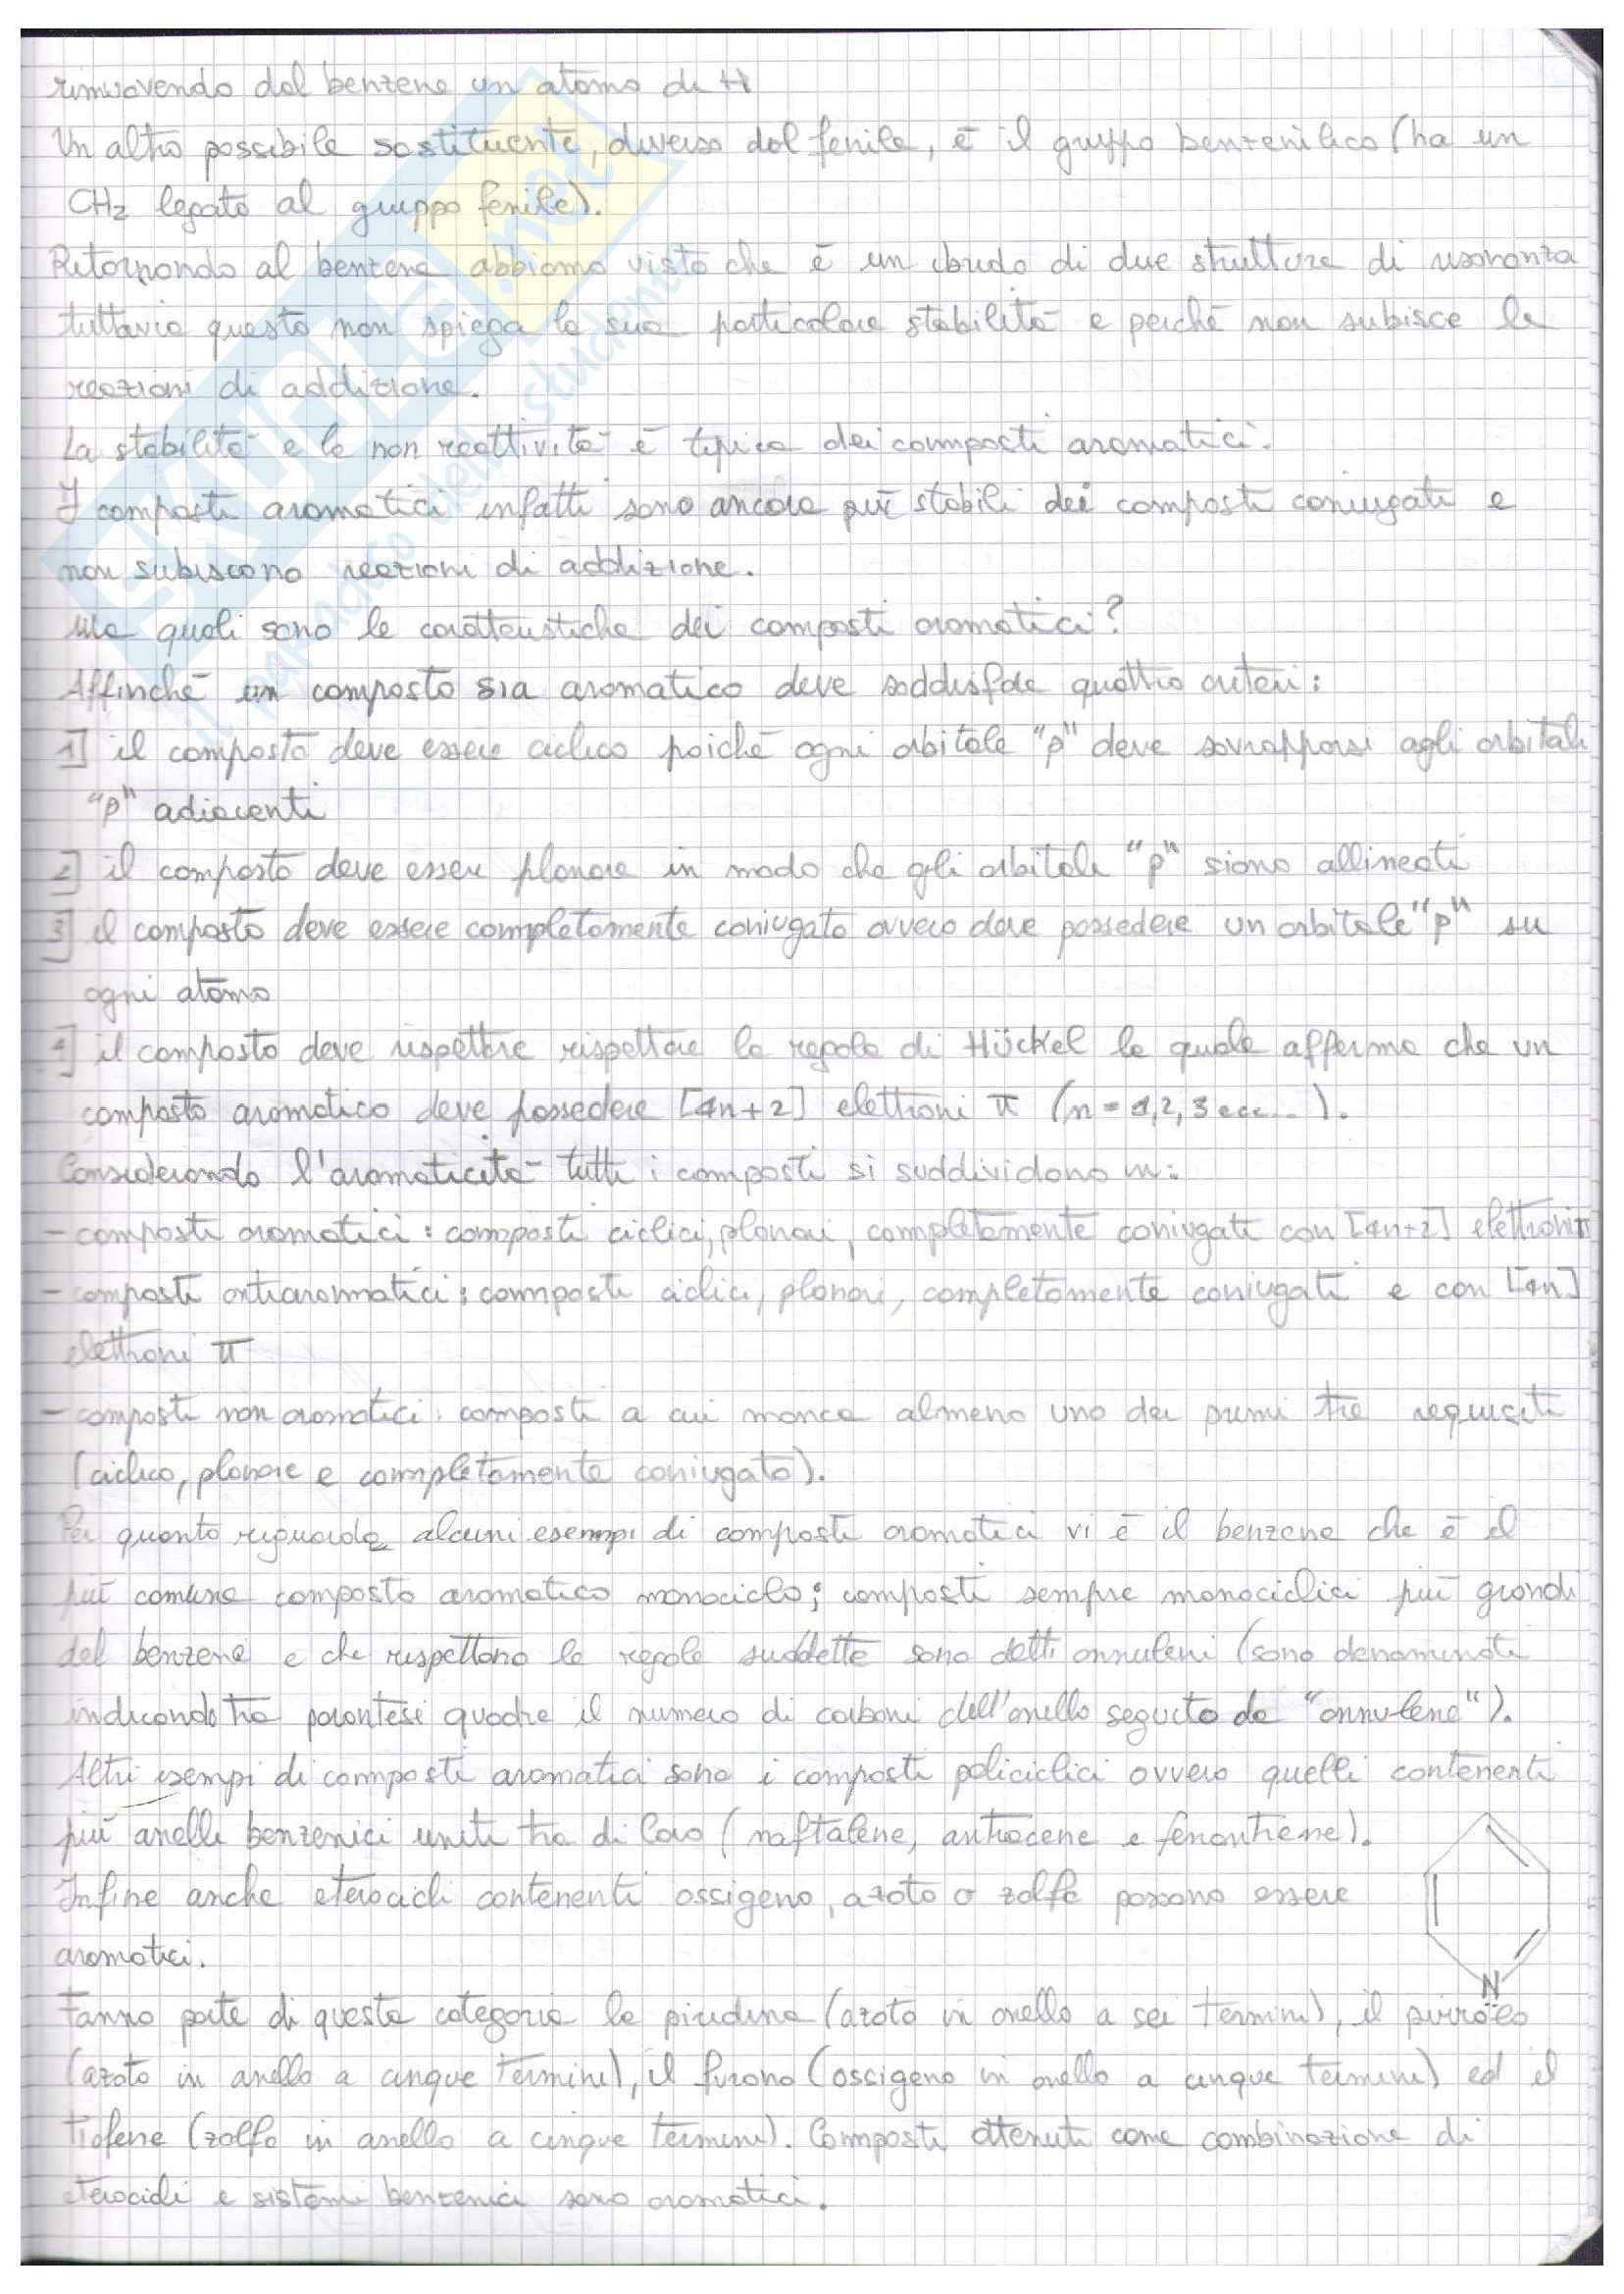 rimuovendo dal benzene un atomo di H
Un altro possibile sostituente, diverso dal fenile, è il gruppo benzenilico (ha un
CH2 legato al gruppo fenile).
Ritornando al benzene abbiamo visto che è un ibrido di due strutture di risonanza
tuttavia questo non spiega la sua particolare stabilità e perché non subisce le
reazioni di addizione.
La stabilità e la non reattività è tipica dei composti aromatici.
I composti aromatici infatti sono ancora più stabili dei composti coniugati e
non subiscono reazioni di addizione.
Ma quali sono le caratteristiche dei composti aromatici?
Affinché un composto sia aromatico deve soddisfare quattro criteri:
1] il composto deve essere ciclico poiché ogni orbitale "p" deve sovrapporsi agli orbitali
"p" adiacenti
2] il composto deve essere planare in modo che gli orbitali "p" siano allineati
3] il composto deve essere completamente coniugato ovvero deve possedere un orbitale "p" su
ogni atomo
4] il composto deve rispettare rispettare la regola di Hückel la quale afferma che un
composto aromatico deve possedere [4n+2] elettroni π (n = 1,2,3 ecc...).
Considerando l'aromaticità tutti i composti si suddividono in:
- composti aromatici: composti ciclici, planari, completamente coniugati con [4n+2] elettroni π
- composti antiaromatici: composti ciclici, planari, completamente coniugati e con [4n]
elettroni π
- composti non aromatici: composti a cui manca almeno uno dei primi tre requisiti
(ciclico, planare e completamente coniugato).
Per quanto riguarda alcuni esempi di composti aromatici vi è il benzene che è il
più comune composto aromatico monociclo; composti sempre monociclici più grandi
del benzene e che rispettano le regole suddette sono detti annuleni (sono denominati
indicando tra parentesi quadre il numero di carboni dell'anello seguito da "annulene").
Altri esempi di composti aromatici sono i composti policiclici ovvero quelli contenenti
più anelli benzenici uniti tra di loro (naftalene, antracene e fenantrene).
Infine anche eterocicli contenenti ossigeno, azoto o zolfo possono essere
aromatici.
N
Fanno parte di questa categoria la piridina (azoto in anello a sei termini), il pirrolo
(azoto in anello a cinque termini), il furano (ossigeno in anello a cinque termini) ed il
tiofene (zolfo in anello a cinque termini). Composti ottenuti come combinazione di
eterocicli e sistemi benzenici sono aromatici.
SKUOLA.net